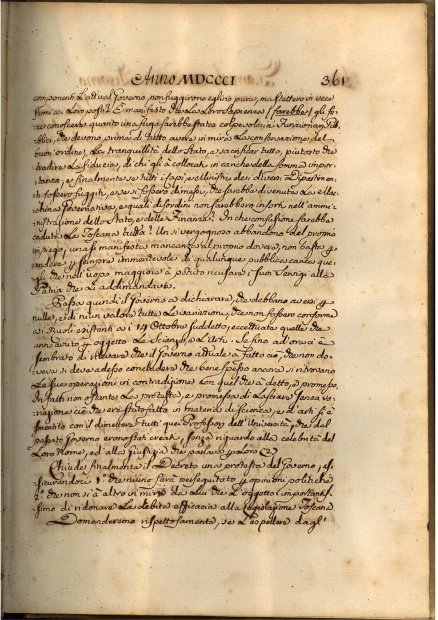 Anno MDCCCI 361
componenti l'attual Governo, non fuggirono eglino pure, ma stettero in vece
fermi a' Loro posti? È manifesto che la Loro Sapienza (farebbe) gli fe-
ce conoscere quanto una fuga sarebbe stata colpevole; i Funzionari Pub-
blici, che devono prima di tutto avere in mira la conservazione del
buon'ordine, la tranquillità dello Stato, e sacrificar tutto, piuttosto che
tradire la fiducia, di chi gli à collocati in cariche della somma impor-
tanza; e finalmente se tutti i Capi, e Ministri dei diversi Dipartimen-
ti fosser fuggiti, e se si fosser dimessi, che sarebbe divenuta la Mac-
china Governativa, e quali disordini non sarebbero insorti nell'ammi-
nistrazione dello Stato, e delle Finanze? In che confusione sarebbe
caduta la Toscana tutta? Un sì vergognoso abbandono del proprio
impiego, una sì manifesta mancanza al proprio dovere, non basta a
rendere p sempre immeritevole di qualunque pubblica carica que-
gli, che nell'uopo maggiore à potuto ricusare i suoi servigi alla
Patria che Lì addimandava.
Passa quindi il Governo a dichiarare, che debbano aversi p
nulle, e di niun valore tutte le variazioni, che non fossero conforme
a' Ruoli esistenti a' 14 Ottobre suddetto, eccettuate quelle che
anno avuto p oggetto le Scienze, e l'Arti. Se fino ad ora ci è
sembrato di rilevare che il Governo attuale à fatto ciò, che non do-
veva si deve adesso concludere che bene spesso ancora si ritrovano
le sue operazioni in contradizione con quel che à detto, e promesso.
Infatti non ostante la protesta, e promessa di lasciare senza va-
riazione ciò che era stato fatto in materia di scienze, e d'arti si è
smentito con il dimettere tutti quei Professori dell'Università, che dal
passato Governo erono stati creati, senza riguardo alla celebrità del
Loro Nome, ed alla giustizia che parlava p Loro (2)
Chiude finalmente il Decreto una protesta del Governo, as-
sicurandoci 1.° che niuno sarà perseguitato p opinioni politiche
2.° che non si à altro in mira che
simo di ridonare la debita efficacia alla legislazione Toscana
Domanderemo rispettosamente, se l'espellere dagl'